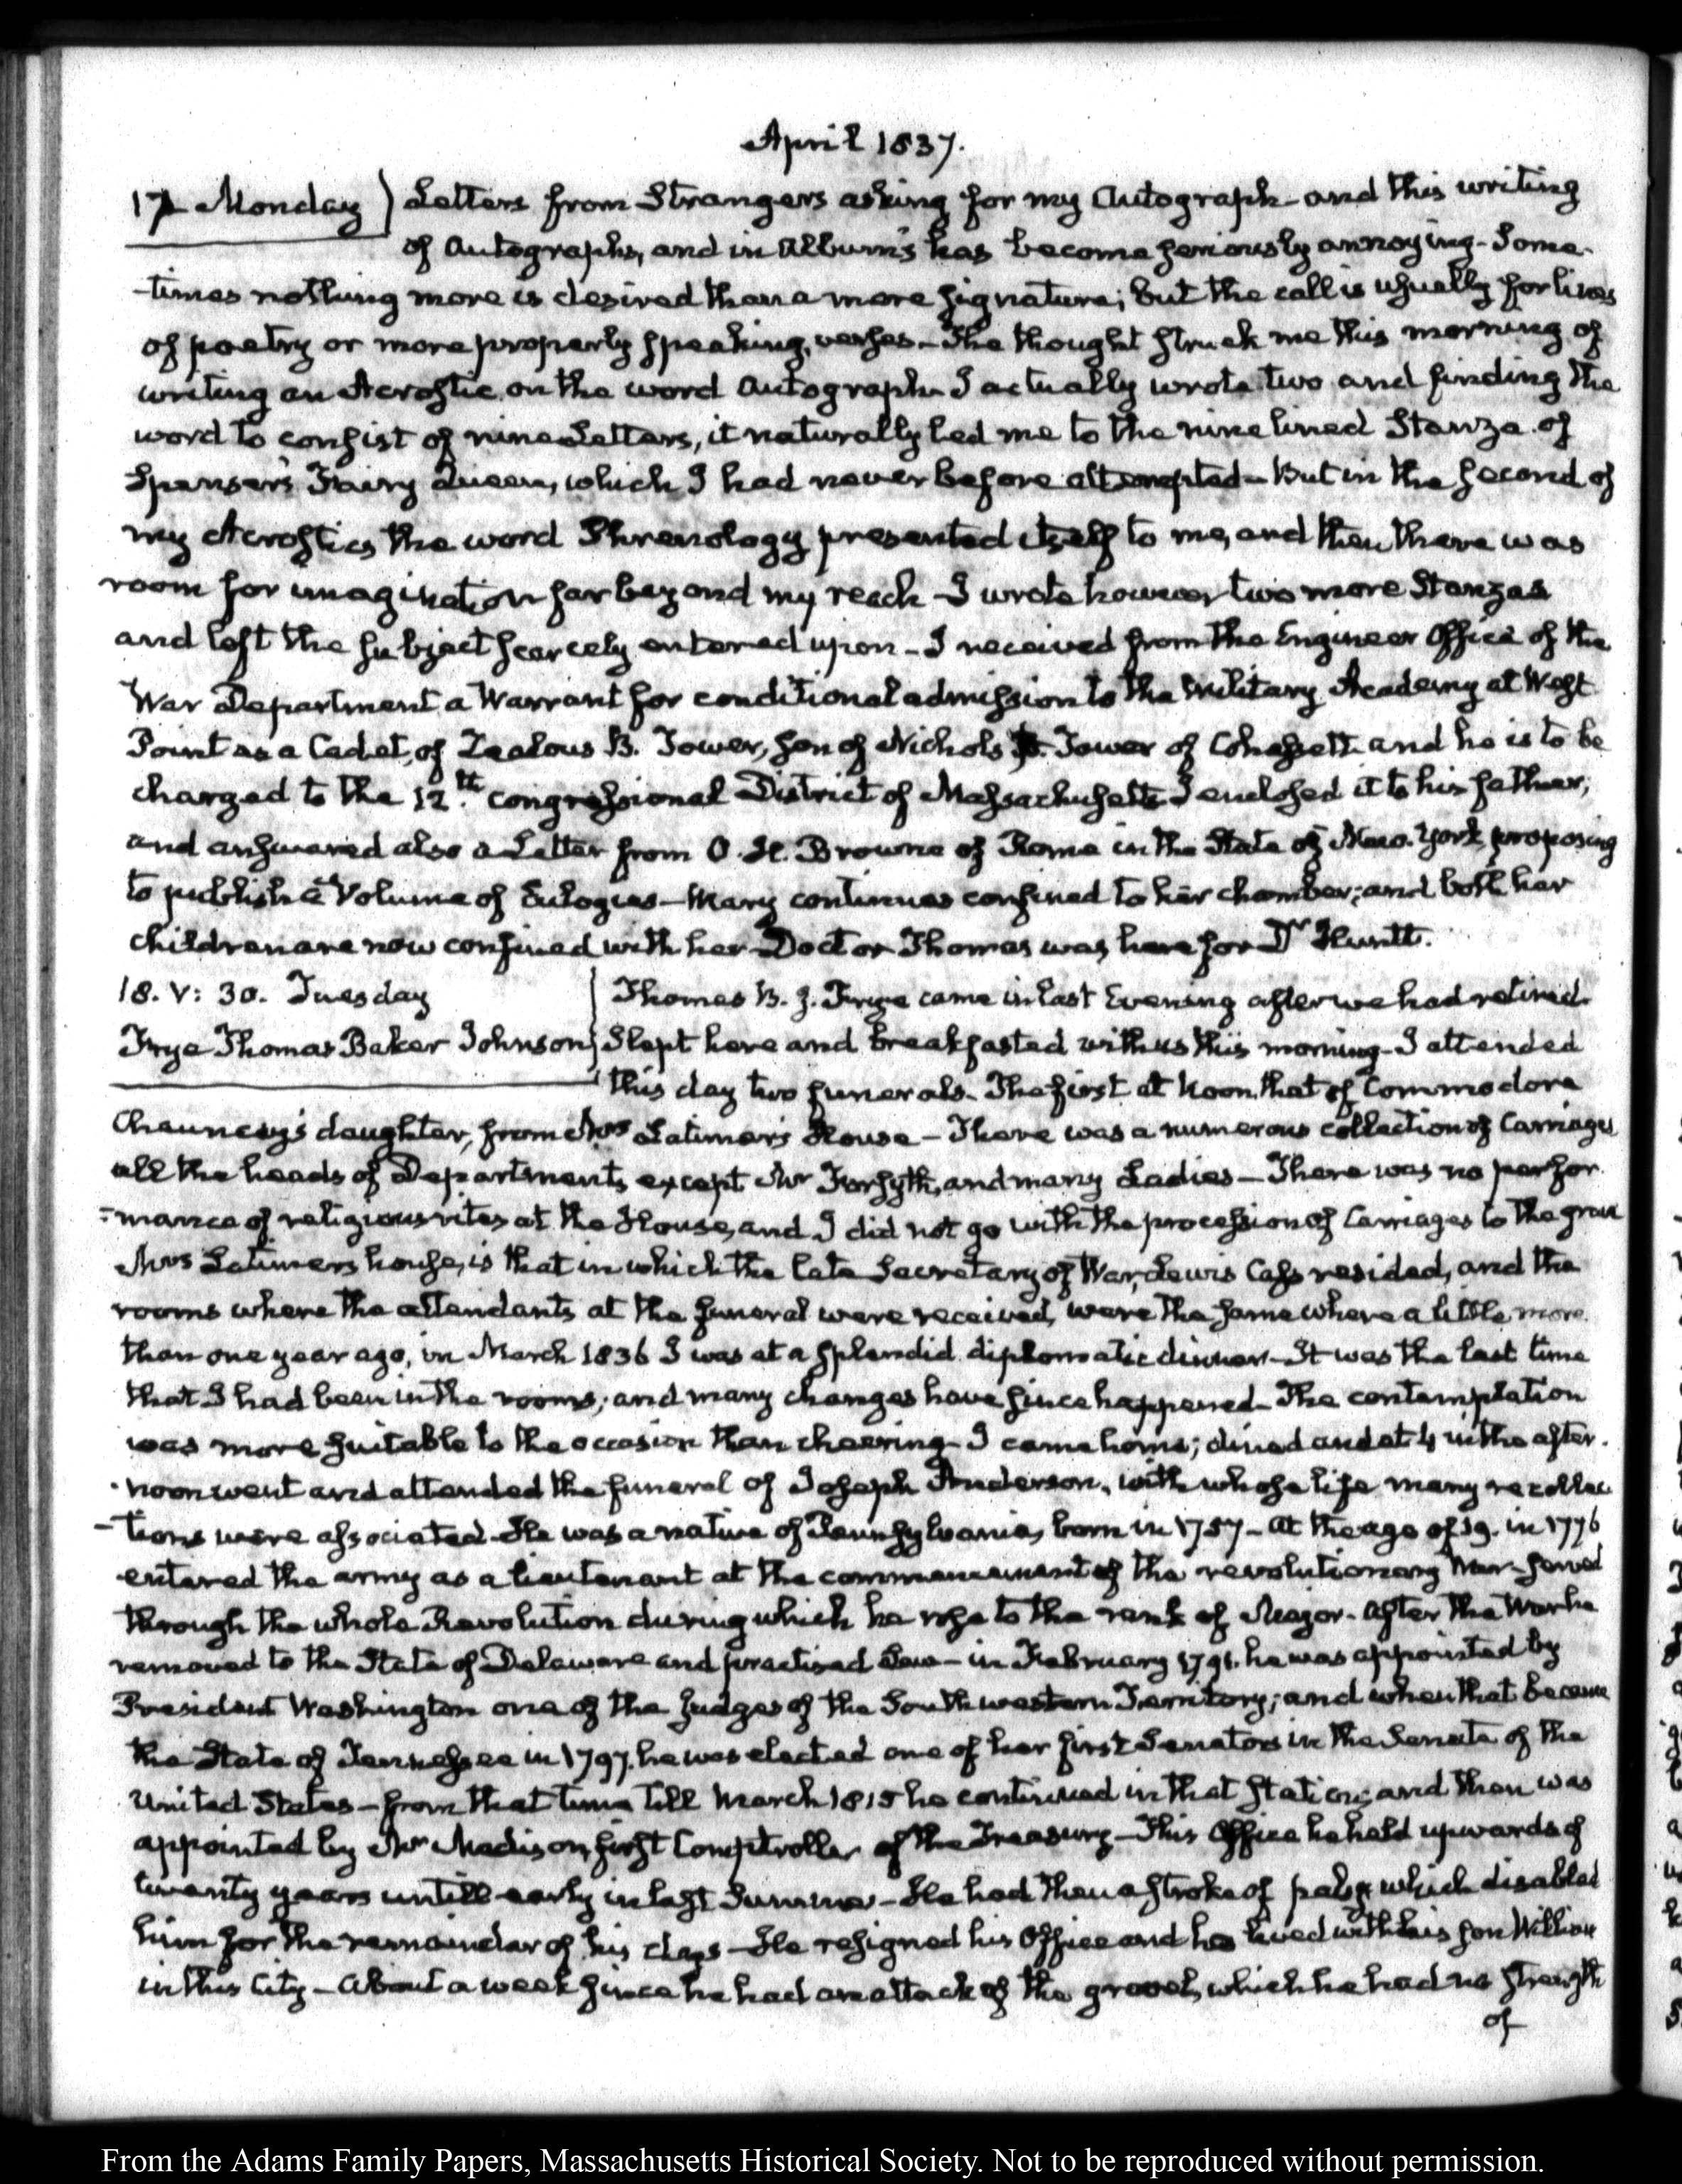 April 1837.
17 Monday) Letters from Strangers asking for my Autograph and this writing
of Autographs, and in Album's has become seriously annoying - Some-
-times nothing more is desired than a mere signature; but the call is usually for lines
of poetry or more properly speaking, verses - The thought struck me this morning of
writing an Acrostic, on the word Autograph I actually wrote two and finding the
word to consist of nine Letters, it naturally led me to the nine lined Stanza of
Spenser's Fairy Queen, which I had never before attempted - But in the second of
my Acrostics the word Phrenology presented itself to me, and then there was
room for imagination far beyond my reach - I wrote however two more Stanzas
and left the subject scarcely entered upon - I received from the Engineer Office of the
War Department a Warrant for conditional admission to the Military Academy at West
Point as a Cadet, of Zealous B. Tower, son of Nichols Tower of Cohassett and he is to be
charged to the 12th. congressional District of Massachusetts I enclosed it to his father;
and answered also a Letter from O. H. Browne of Rome in the State of New-York, proposing
to publish a Volume of Eulogies - Mary continues confined to her chamber; and both her
children are now confined with her Doctor Thomas was here for Dr Huntt.
18. V: 30. Tuesday } Thomas B. J. Frye came in last Evening after we had retired.
Frye Thomas Baker Johnson} Slept here and breakfasted with us this morning - I attended
this day two funerals. The first at Noon, that of Commodore
Chauncey's daughter, from Mrs Latimer's House - There was a numerous collection of Carriages
all the heads of Departments, except Mr Forsyth, and many Ladies - There was no perfor
=mance of religious rites at the House, and I did not go with the procession of Carriages to the grave
Mrs Latimers house, is that in which the late Secretary of War, Lewis Cass resided, and the
rooms where the attendants at the funeral were received, were the same where a little more
than one year ago, in March 1836 I was at a splendid diplomatic dinner - It was the last time
that I had been in the rooms; and many changes have since happened - The contemplation
was more suitable to the occasion than cheering - I came home; dined and at 4 in the after-
-noon went and attended the funeral of Joseph Anderson, with whose life many recollec
-tions were associated - He was a native of Pennsylvania, born in 1757 - at the age of 19. in 1776
entered the army as a lieutenant at the commencement of the revolutionary War - served
through the whole Revolution during which he rose to the rank of Major - After the War he
removed to the State of Delaware and practised Law - in February 1791. he was appointed by
President Washington one of the judges of the Southwestern Territory; and when that became
the State of Tennessee in 1797. he was elected one of her first Senators in the Senate of the
United States - from that time till March 1815 he continued in that station; and then was
appointed by Mr Madison, first Comptroller of the Treasury - This Office he held upwards of
twenty years untill early in last Summer - He had then a stroke of palsy which disabled
him for the remainder of his days - He resigned his Office and has lived with his son William
in this City - About a week since he had an attack of the gravel, which he had no strength
of
From the Adams Family Papers, Massachusetts Historical Society. Not to be reproduced without permission.